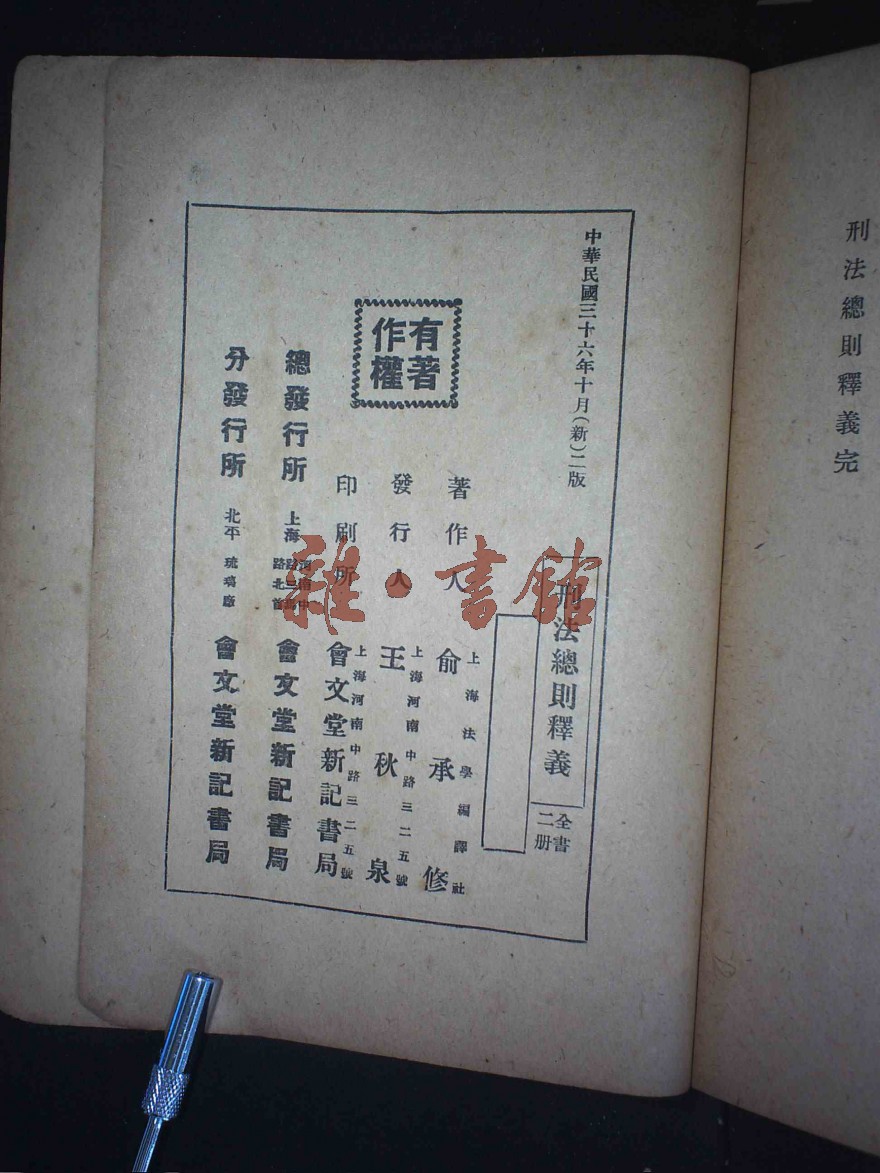 刑法總則釋義完
中華民國三十六年十月(新)二版
刑法總則釋義
全書二册
上海法學編譯社
著作人 俞承修
上海河南中路三二五號
發行人 王秋泉
上海河南中路三二五號
印刷所 會文堂新記書局
有著作權
總發行所 上海 會文堂新記書局
分發行所 北平 琉璃廠 會文堂新記書局
雜·書館